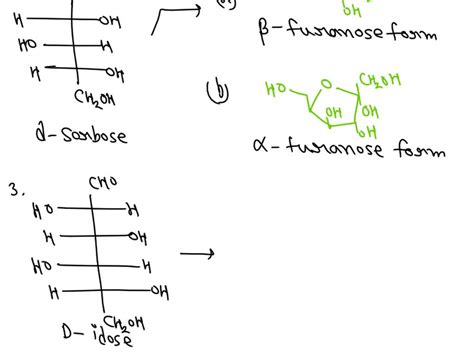 (a)
OH
β-furanose form
H OH
HO H
H OH
CH₂OH
d-sorbose
(b)
HO O CH₂OH
OH OH
OH
α-furanose form
3.
CHO
HO H
H OH
HO H
H OH
CH₂OH
D-idose